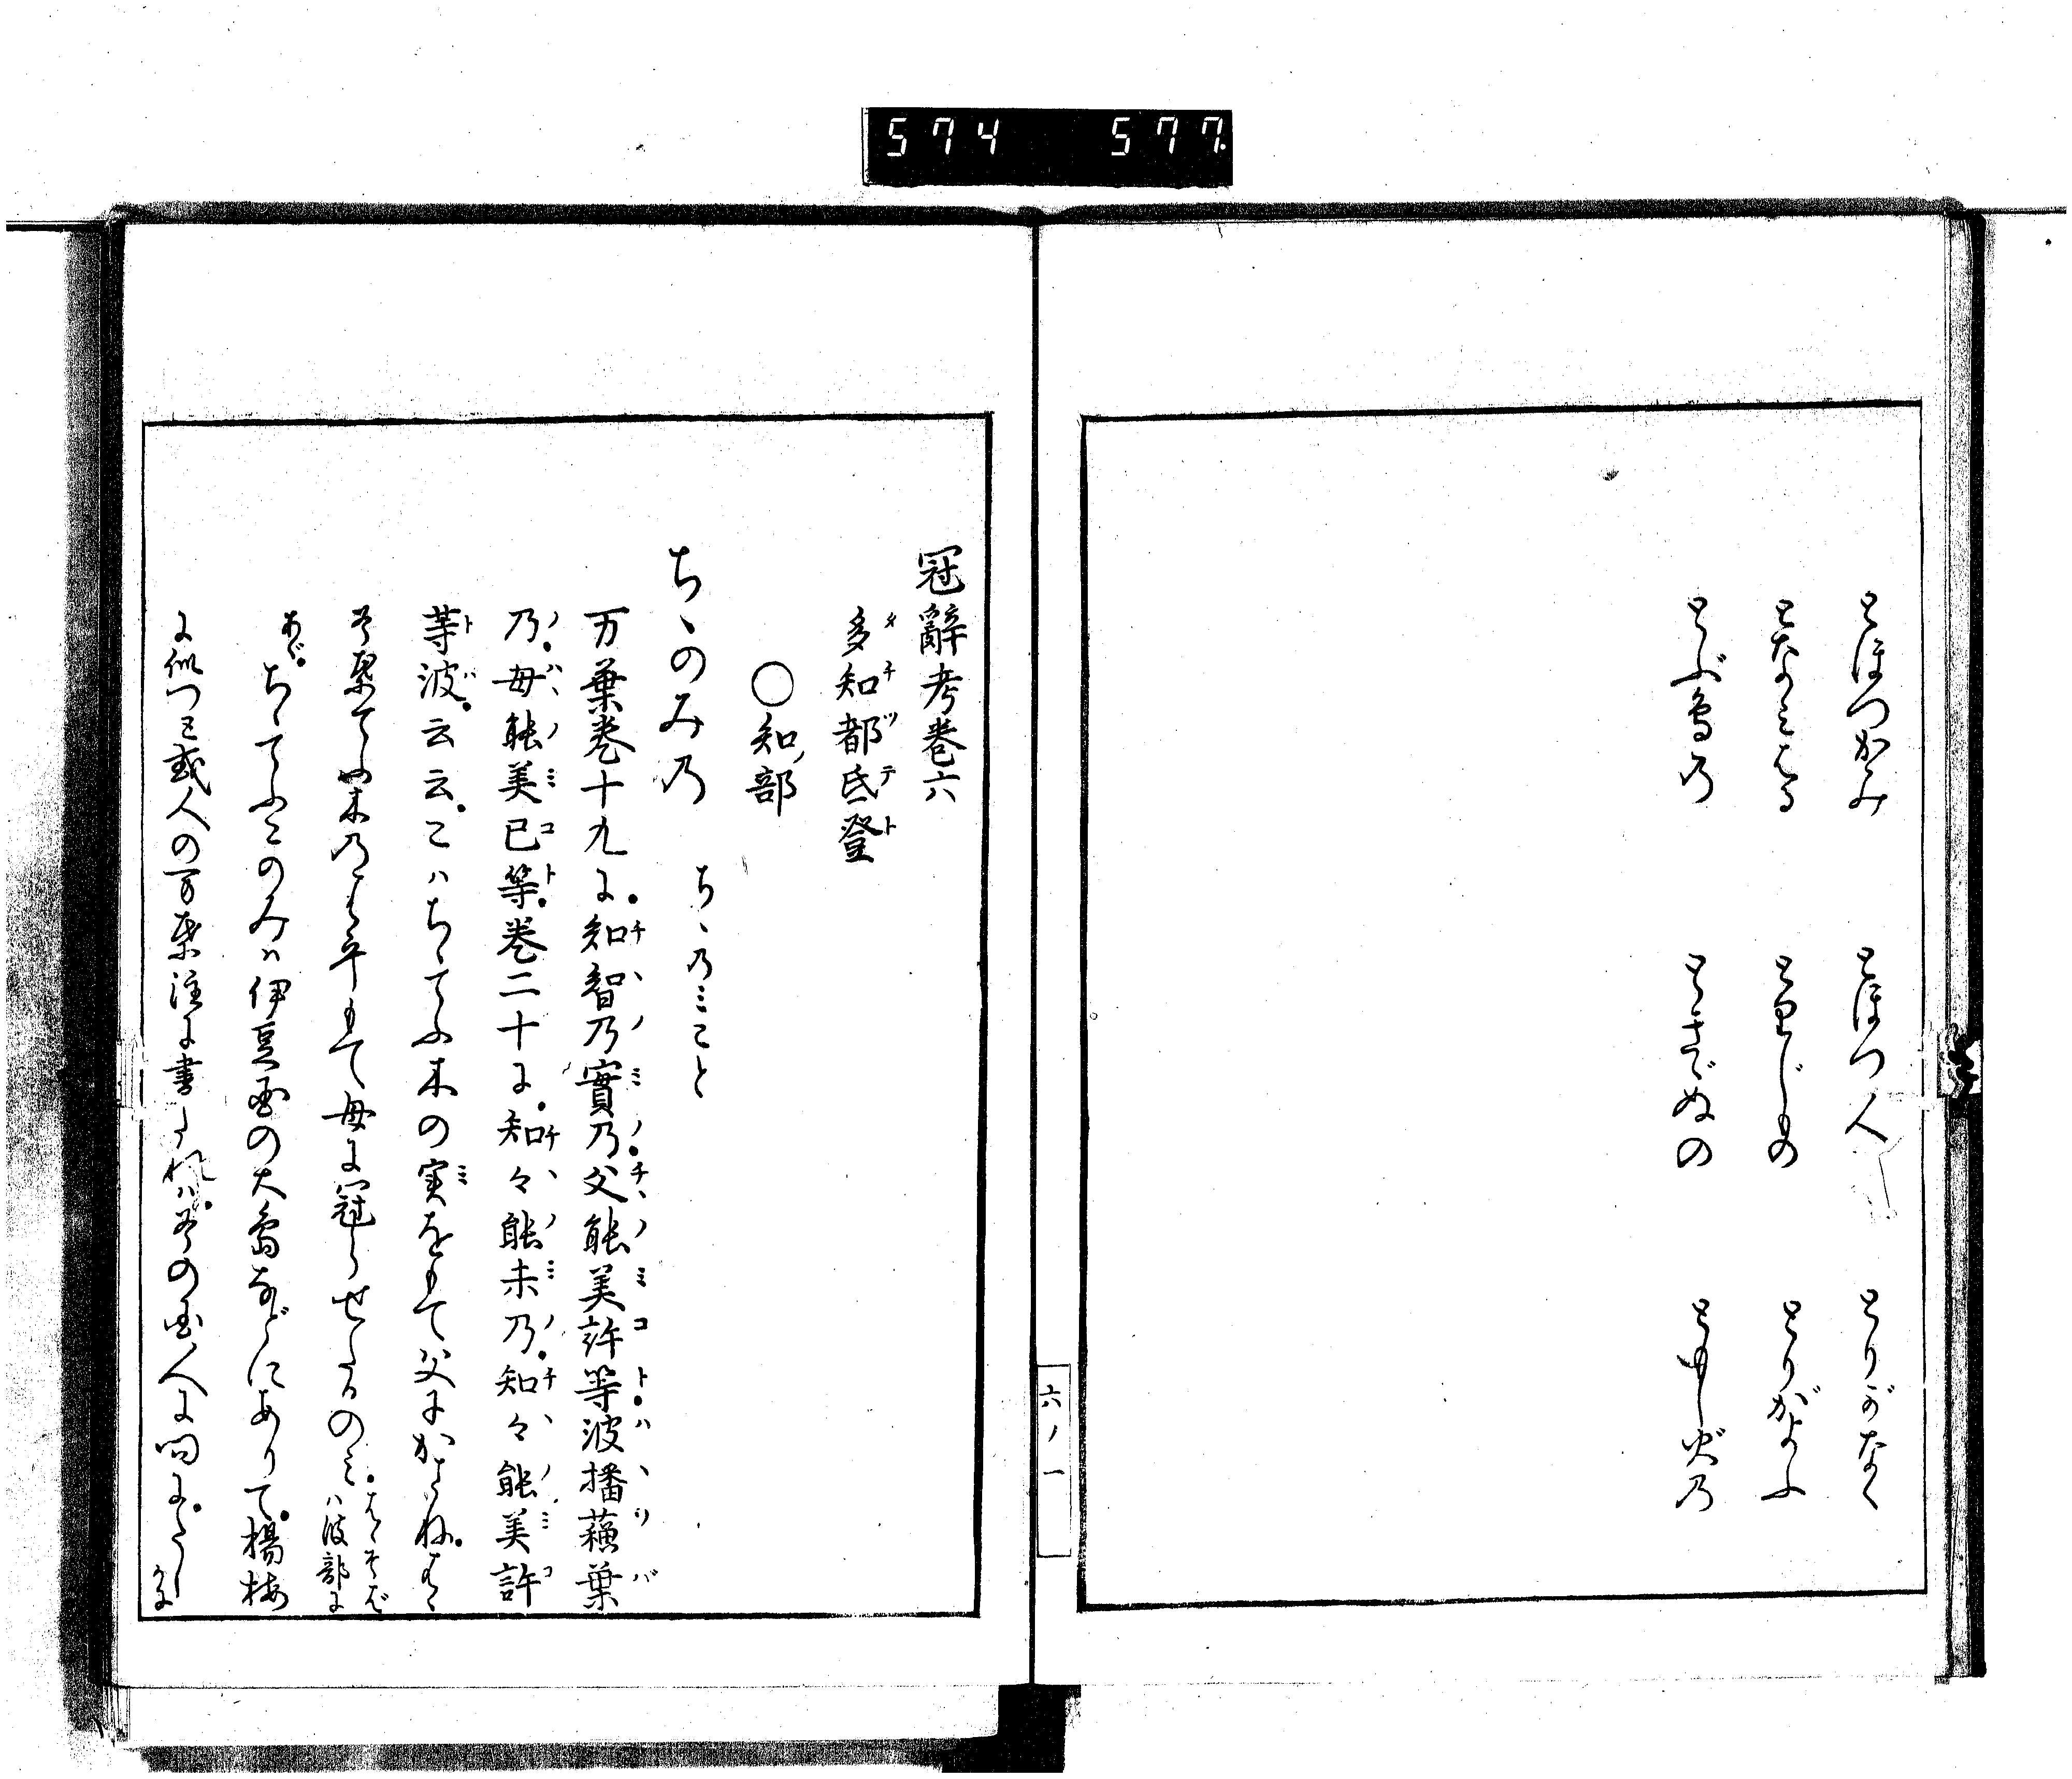 574 577
とほつかみ とほつ人 とりがなく
となみはる とりじもの とりがよふ
とぶ鳥乃 とさぎぬの ともし火乃
六ノ一
冠辭考巻六
多知都氐登
○知部
ちゝのみ乃 ちゝ乃みこと
万葉巻十九に知智乃實乃父能美許等波播蘓葉
乃母能美己等巻二十に知々能未乃知々能美許
等波云云こハちゝてふ木の実をもて父にかさねはゝ
そ葉てふ木乃はを
もて母に冠らせたるのみ はゝそばハ波部に
あぐ ちゝてふこのみハ伊豆国の大島などにありて楊梅
に似つと或人の万葉注に書たれハその国人に問に